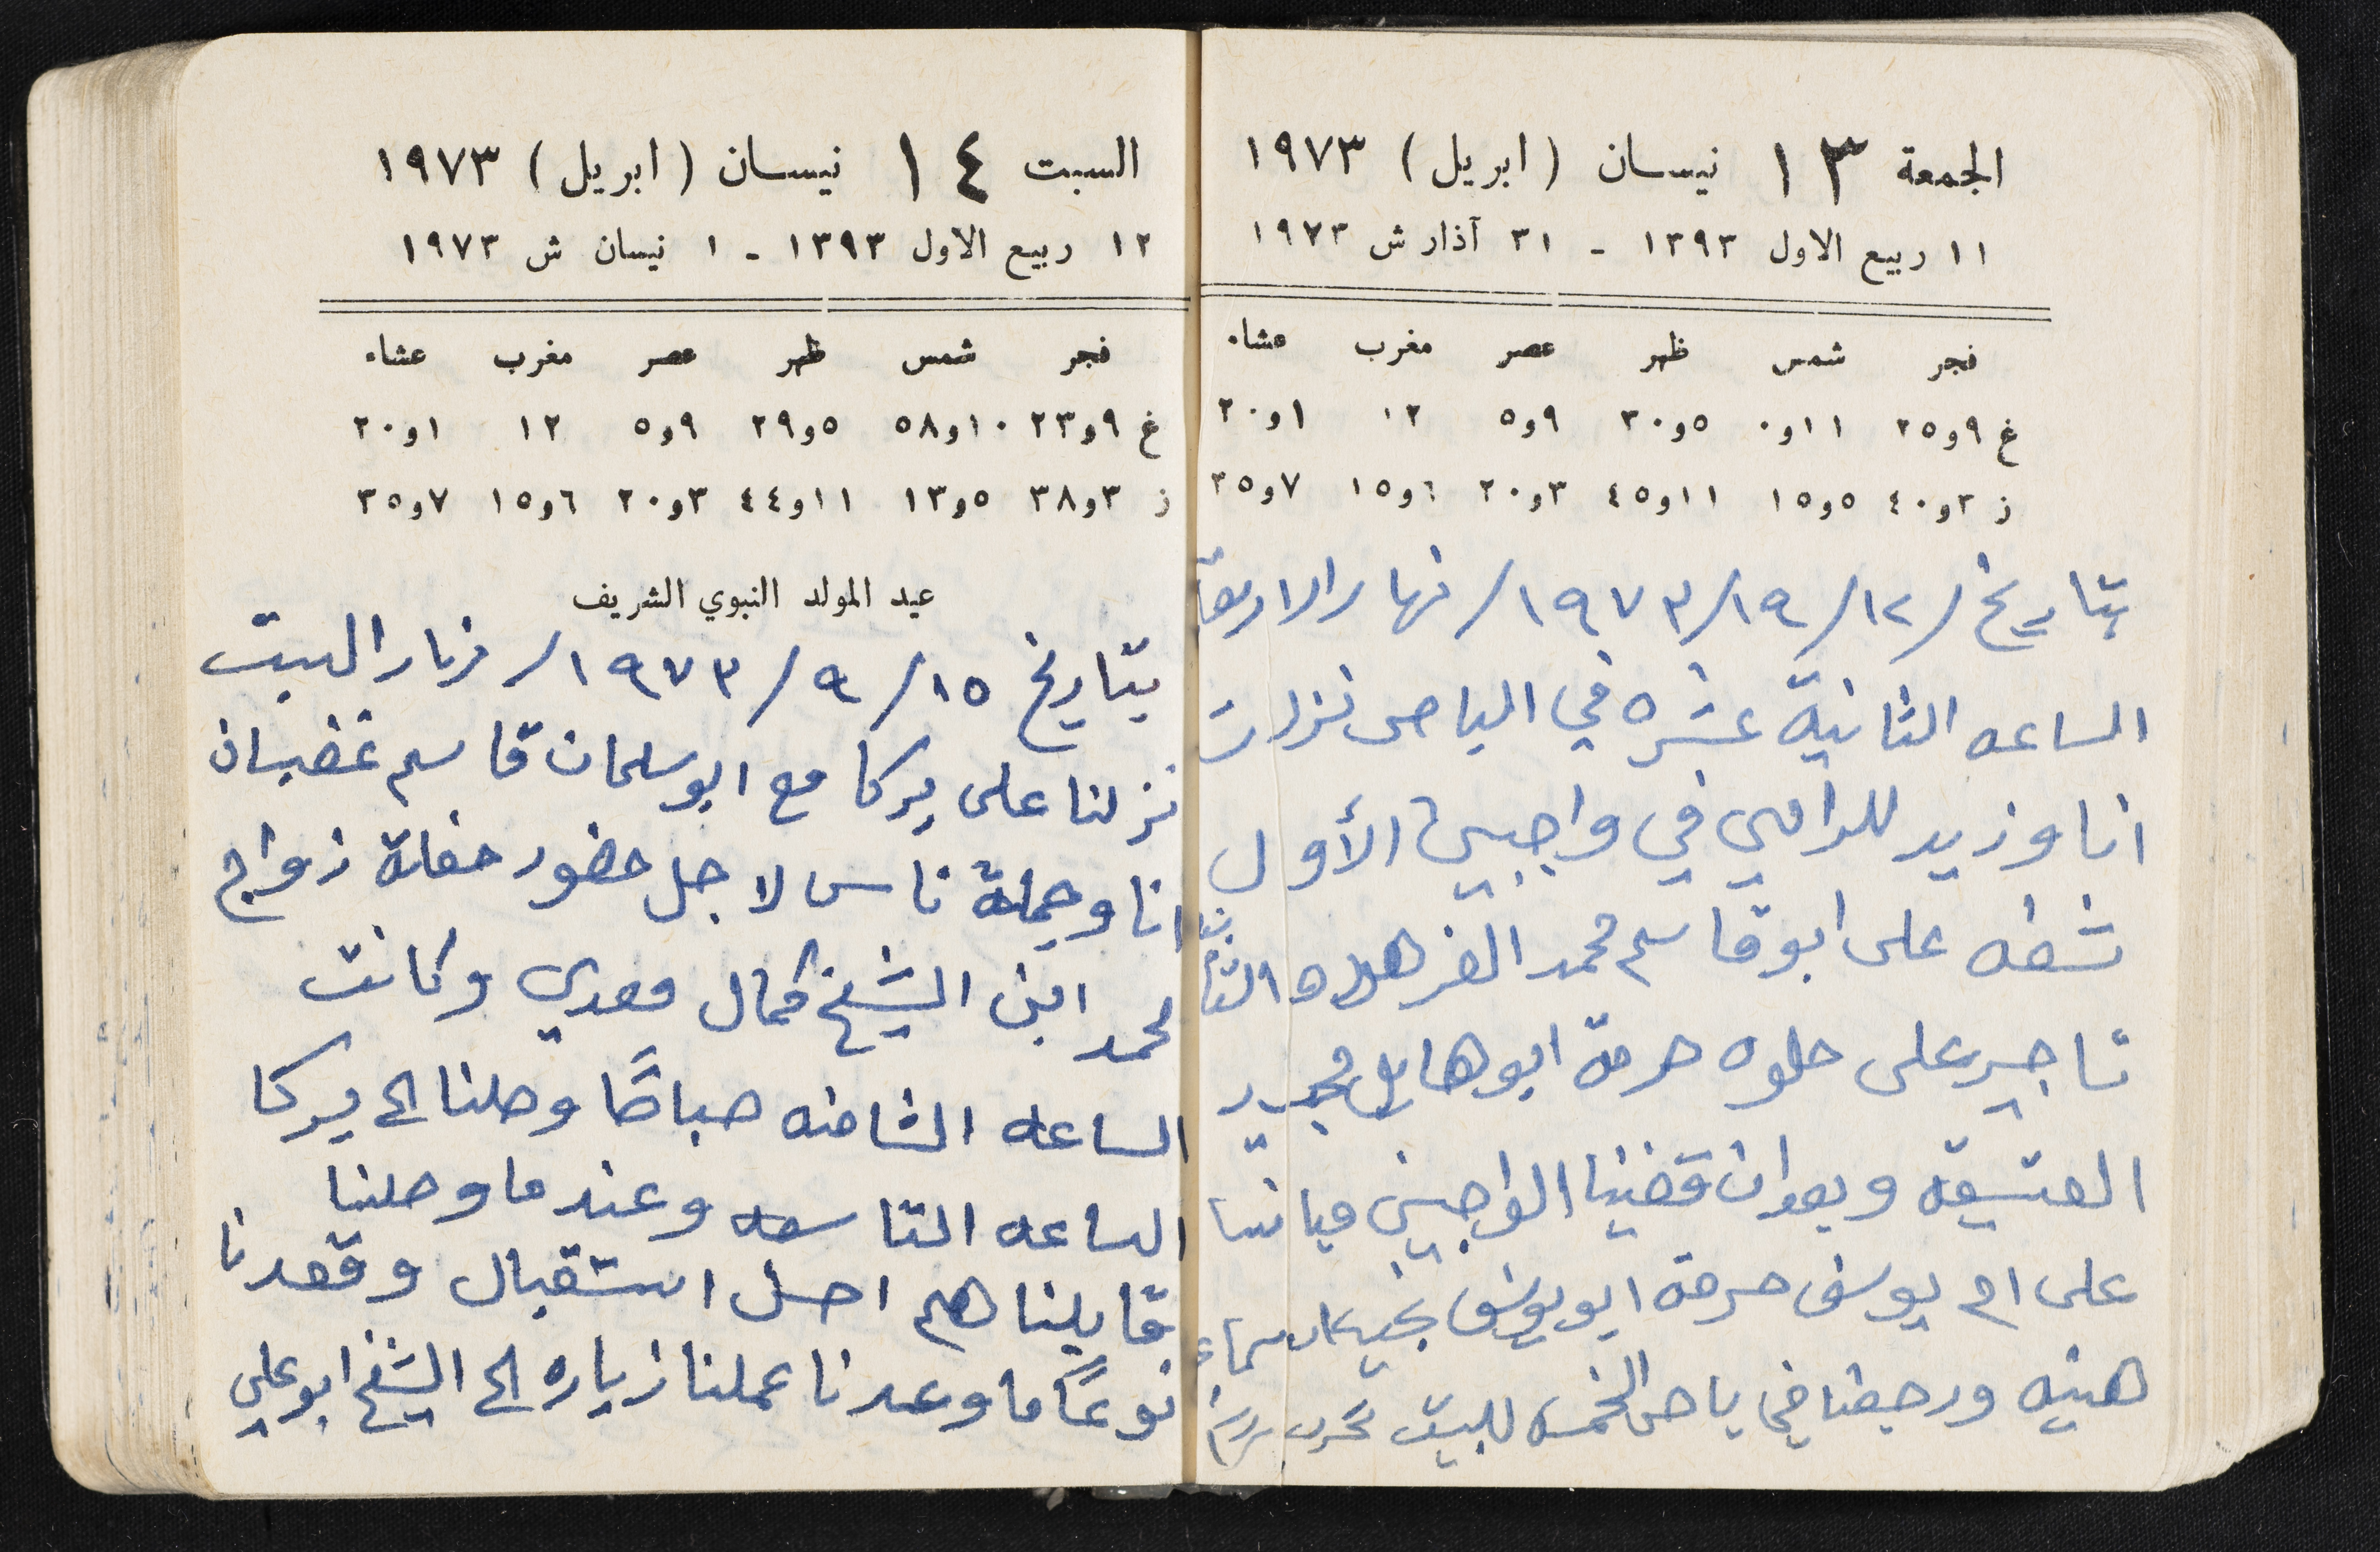 الجمعة ١٣ نيسان (ابريل) ١٩٧٣
١١ ربيع الاول ١٣٩٣ - ٣١ آذار ش ١٩٧٣
فجر شمس ظهر عصر مغرب عشاء
غ ٩و٢٥ ١١و٠ ٥و٣٠ ٩و٥ ١٢ ١و٢٠
ز ٣و٤٠ ٥و١٥ ١١و٤٥ ٣و٢٠ ٦و١٥ ٧و٣٥
بتاريخ /١٢/ ٩/ ١٩٧٣/ نهار الاربعا
الساعه الثانية عشره في الباص نزلت
انا وزيد للرامي في واجبين الأول
شقفه على ابو قاسم محمد الفرهود والثاني
تاجير على حلوه حرمة ابو محمد
العتيقه وبعد ان قضينا الواجبين
على ام يوسف حرمة ابو يوسف نجيب
هنيه ورجعنا في باص الخمسه للبيت
السبت ١٤ نيسان (ابريل) ١٩٧٣
١٢ ربيع الاول ١٣٩٣ - ١ نيسان ش ١٩٧٣
فجر شمس ظهر عصر مغرب عشاء
غ ٩و٢٣ ١٠و٥٨ ٥و٢٩ ٩و٥ ١٢ ١و٢٠
ز ٣و٣٨ ٥و١٣ ١١و٤٤ ٣و٢٠ ٦و١٥ ٧و٣٥
عيد المولد النبوي الشريف
بتاريخ ١٥/ ٩/ ١٩٧٣/ نهار السبت
نزلنا على يركا مع ابو سلمان قاسم غضبان
انا وجملة ناس لاجل حضور حفلة زواج
محمد ابن الشيخ كمال معدي وكانت
الساعه الثامنه صباحًا وصلنا الى يركا
الساعه التاسعه وعندما وصلنا
قابلناهم احسن استقبال وقعدنا
نوعًا ما وعدنا عملنا زياره الى الشيخ ابو علي